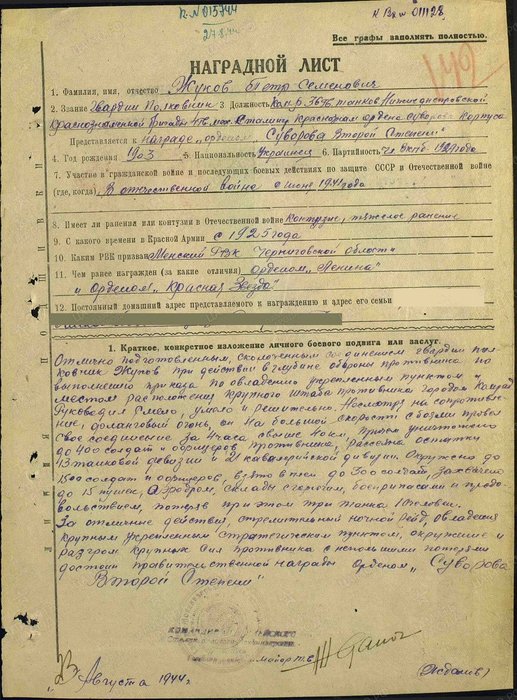 п.№015744
27.8.44
к Вх № 011128
Все графы заполнять полностью.
НАГРАДНОЙ ЛИСТ
1. Фамилия, имя, отчество Жуков Петр Семенович
2. Звание Гвардии Полковник 3. Должность Ком-р 36 гв. танков. Нижнеднестровской
Краснознаменной бригады 4 гв. мех. Сталинг. Краснознам ордена Суворова Корпуса
Представляется к Награде орденом „Суворова Второй Степени"
4. Год рождения 1903 5. Национальность Украинец 6. Партийность
7. Участие в гражданской войне и последующих боевых действиях по защите СССР и Отечественной войне
(где, когда) В отечественной войне с июня 1941 года
8. Имеет ли ранения или контузии в Отечественной войне Контузию, тяжелое ранение
9. С какого времени в Красной Армии с 1925 года
10. Каким РВК призван Менский РВК Черниговской области
11. Чем ранее награжден (за какие отличия) Орденом „Ленина"
и Орденом „Красная Звезда"
12. Постоянный домашний адрес представляемого к награждению и адрес его семьи
1. Краткое, конкретное изложение личного боевого подвига или заслуг.
Отлично подготовленным, сколоченным соединением гвардии пол-
ковник Жуков при действии в глубине обороны противника на
выполнение приказа по овладению укрепленным пунктом и
местом расположения крупного штаба противника городом Комрат
Руководил смело, умело и решительно. Несмотря на сопротивле-
ние, огонь, он на большой скорости с боями провел
свое соединение за 4 часа свыше 40 км, причем уничтожено
до 400 солдат и офицеров противника, рассеяны остатки
13 танковой дивизии и 21 кавалерийской дивизии. Окружено до
1500 солдат и офицеров, взято в плен до 300 солдат, захвачено
до 15 пушек, аэродром, склады с горючим, боеприпасами и продо-
вольствием, потеряв при этом три танка
За отличные действия, стремительный ночной рейд, овладения
крупным укрепленным стратегическим пунктом, окружение и
разгром крупных сил противника с небольшими потерями
достоин правительственной награды Орденом „Суворова
Второй Степени"
майор т.в.
(Жданов)
Августа 1944 г.